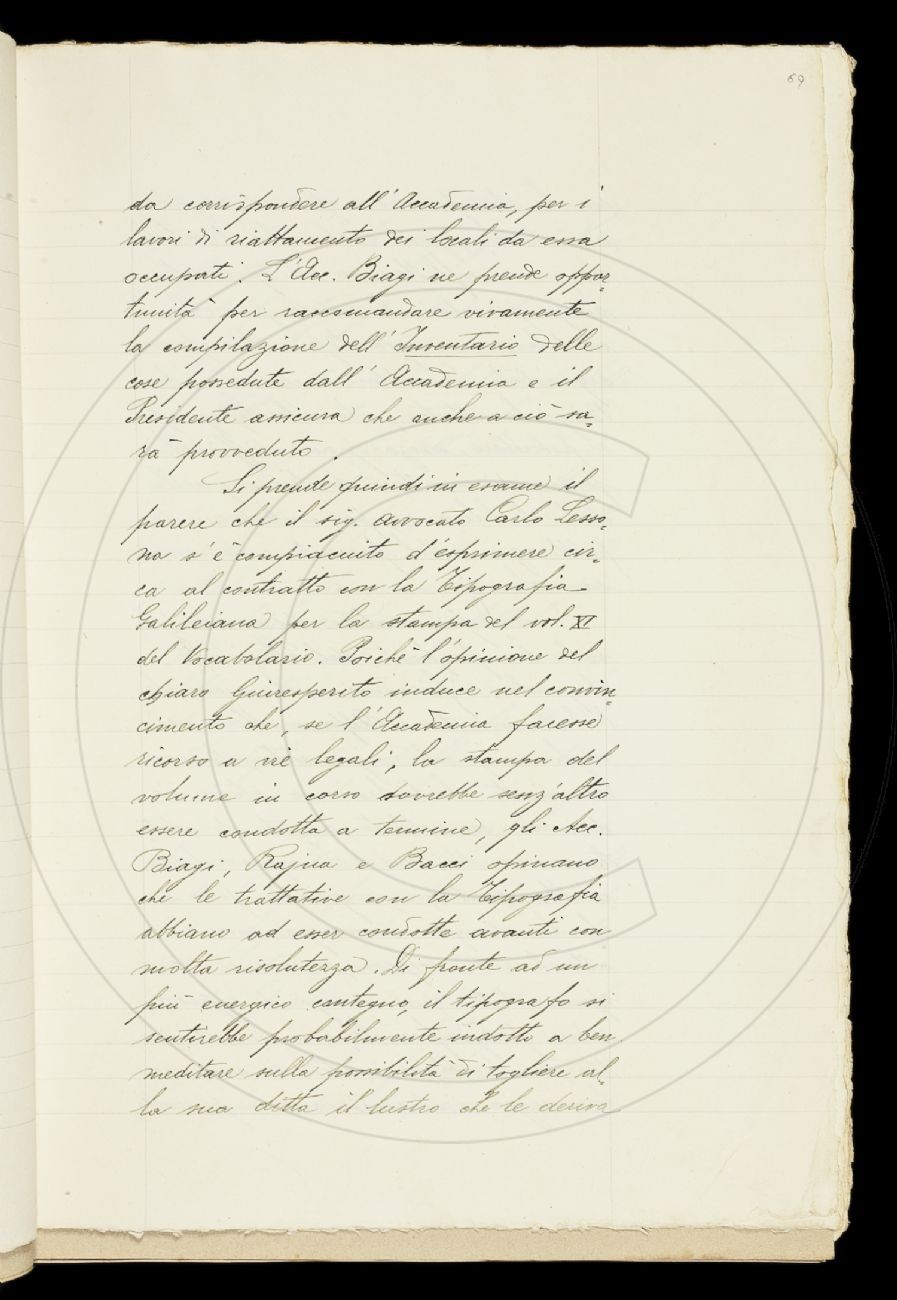 69
da corrispondere all' Accademia, per i
lavori di riattamento dei locali da essa
occupati. L'Acc. Biagi ne prende oppor=
tunità per raccomandare vivamente
la compilazione dell' Inventario delle
cose possedute dall' Accademia e il
Presidente assicura che anche a ciò sa=
rà provveduto.
Si prende quindi in esame il
parere che il sig. avvocato Carlo Lesso=
na s'è compiaciuto d'esprimere cir=
ca al contratto con la Tipografia
Galileiana per la stampa del vol. XI
del Vocabolario. Poichè l'opinione del
chiaro Giuresperito induce nel convin=
cimento che, se l'Accademia facesse
ricorso a vie legali, la stampa del
volume in corso dovrebbe senz'altro
essere condotta a termine, gli Acc.
Biagi, Rajna e Bacci opinano
che le trattative con la Tipografia
abbiano ad esser condotte avanti con
molta risolutezza. Di fronte ad un
più energico contegno, il tipografo si
sentirebbe probabilmente indotto a ben
meditare sulla possibilità di togliere al=
la sua ditta il lustro che le deriva